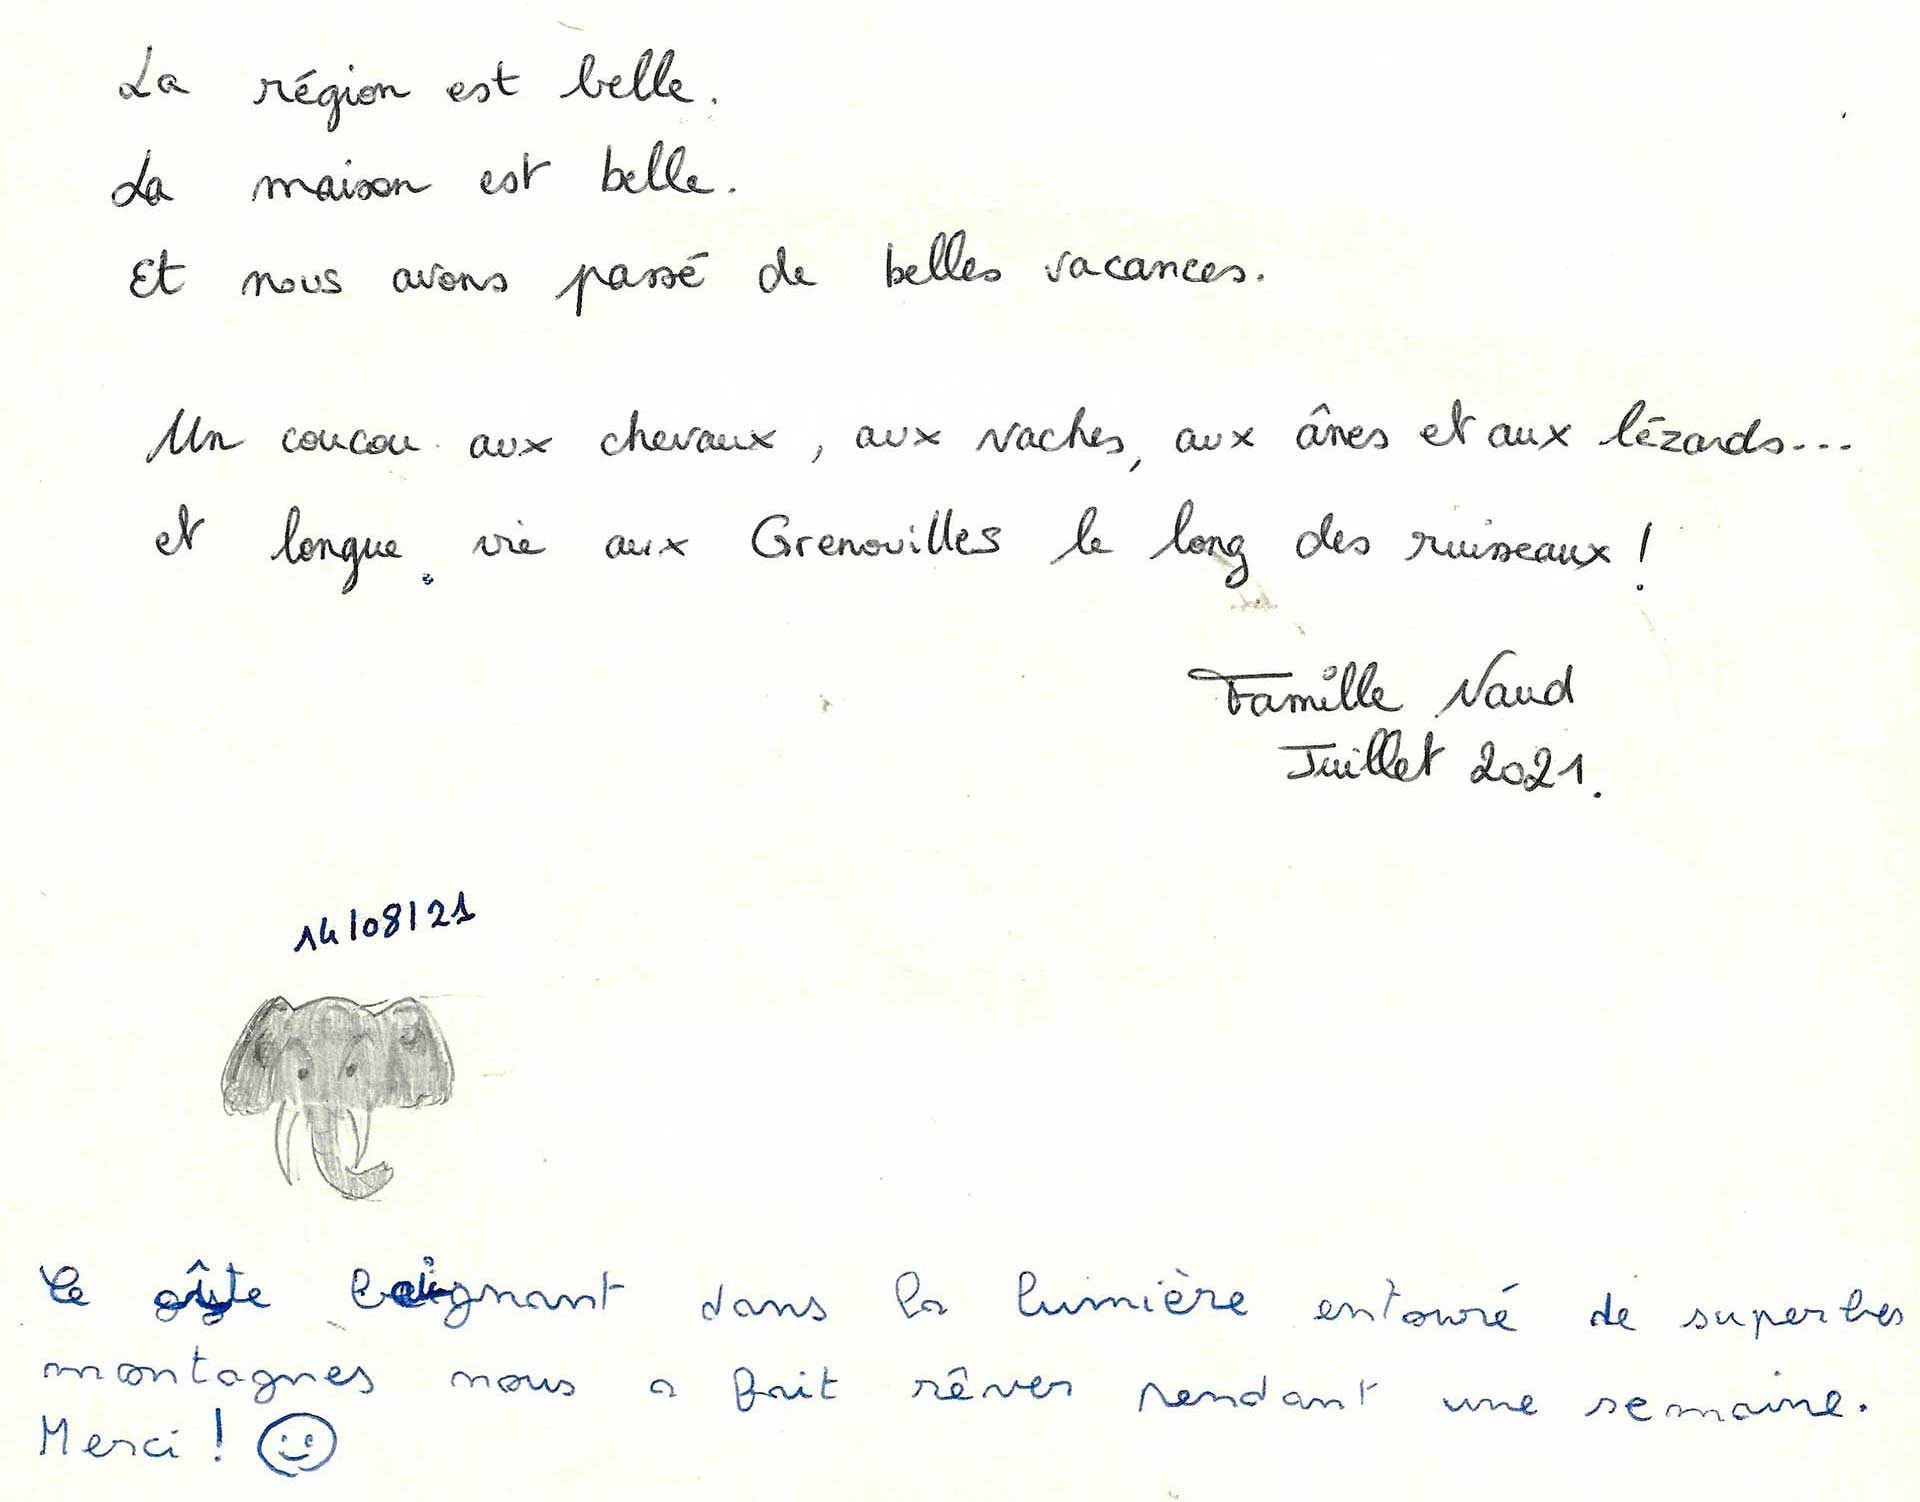 La région est belle.
La maison est belle.
Et nous avons passé de belles vacances.
Un coucou aux chevaux, aux vaches, aux ânes et aux lézards...
et longue vie aux Grenouilles le long des ruisseaux !
Famille Naud
Juillet 2021.
14/08/21
Le gîte baignant dans la lumière entouré de superbes
montagnes nous a fait rêver pendant une semaine.
Merci ! ☺